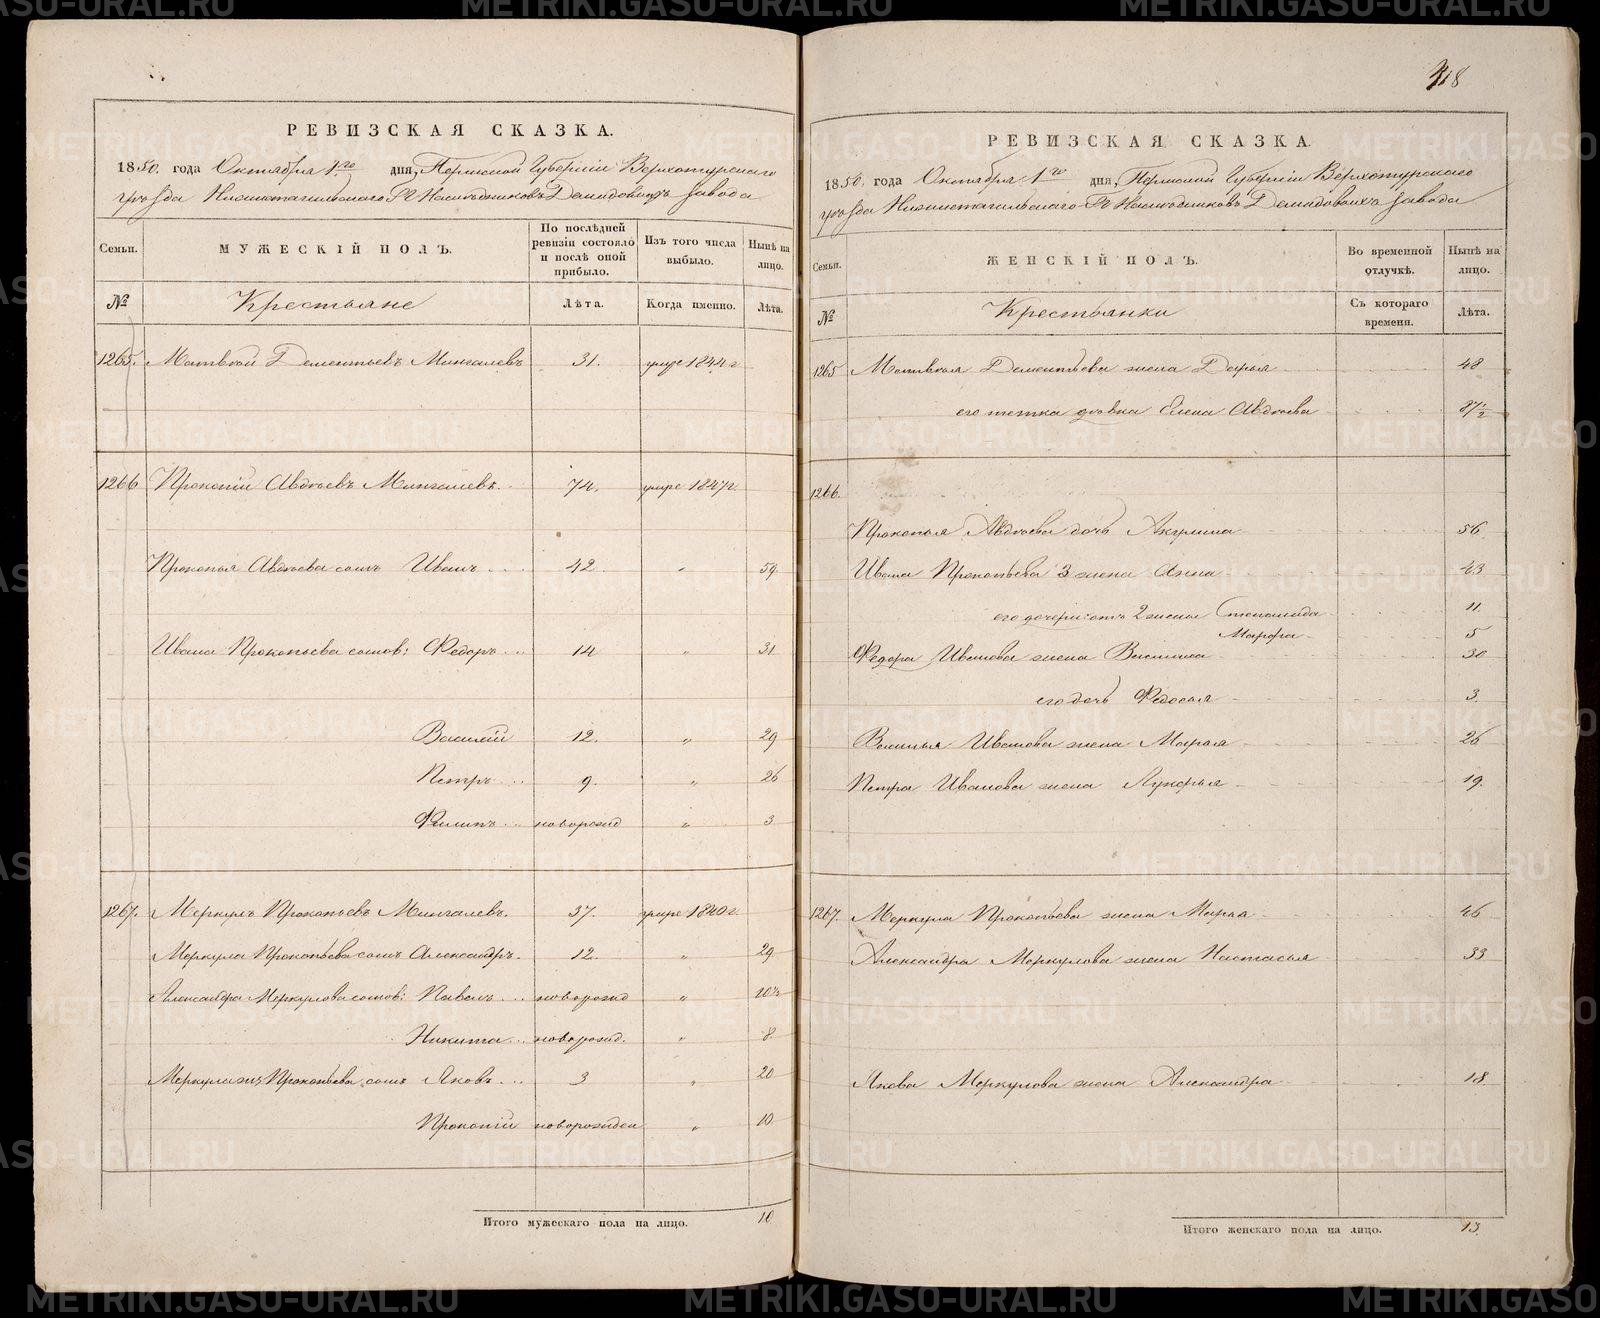 РЕВИЗСКАЯ СКАЗКА.
1850. года Октября 1го дня, Пермской Губернiи Верхотурскаго
уѣзда Нижнетагильскаго Гг Наслѣдниковъ Демидовыхъ завода
Семьи.
МУЖЕСКIЙ ПОЛЪ.
По послѣдней ревизiи состояло и послѣ оной прибыло.
Изъ того числа выбыло.
Нынѣ на лицо.
№
Крестьяне
Лѣта.
Когда именно.
Лѣта.
1265. Матвѣй Дементьевъ Мингалевъ 31. умре 1844 г
1266 Прокопiй Авдѣевъ Мингалевъ. 74. умре 1847 г.
Прокопья Авдѣева сынъ Иванъ 42. " 59.
Ивана Прокопьева сынов: Федоръ 14 " 31
Василiй 12. " 29
Петръ 9. " 26
Филипъ новорожд " 3
1267. Меркулъ Прокопьевъ Мингалевъ. 37. умре 1840 г.
Меркула Прокопьева сынъ Александръ. 12. " 29
Александра Меркулова сынов: Павелъ новорожд " 10½
Никита новорожд. " 8
Меркула Прокопьева сынъ Яковъ 3 " 20
Прокопiй новорожден " 10.
Итого мужескаго пола на лицо. 10
318
РЕВИЗСКАЯ СКАЗКА.
1850. года Октября 1го дня, Пермской Губернiи Верхотурскаго
уѣзда Нижнетагильскаго Гг Наслѣдниковъ Демидовыхъ завода
Семьи.
ЖЕНСКIЙ ПОЛЪ.
Во временной отлучкѣ.
Нынѣ на лицо.
№
Крестьянки
Съ котораго времени.
Лѣта.
1265 Матвѣя Дементьева жена Дарья 48
его тетка дѣвка Елена Авдѣева 87½
1266.
Прокопья Авдѣева дочь Акулина 56
Ивана Прокопьева 3 жена Анна 43
его дочери: отъ 2 жены Степанида 11.
Марфа 5
Федора Иванова жена Василиса 30
его дочь Федосья 3.
Василья Иванова жена Марья 26
Петра Иванова жена Лукерья 19.
1267. Меркула Прокопьева жена Марья 46
Александра Меркулова жена Настасья 33
Якова Меркулова жена Александра 18
Итого женскаго пола на лицо. 13.
METRIKI.GASO-URAL.RU